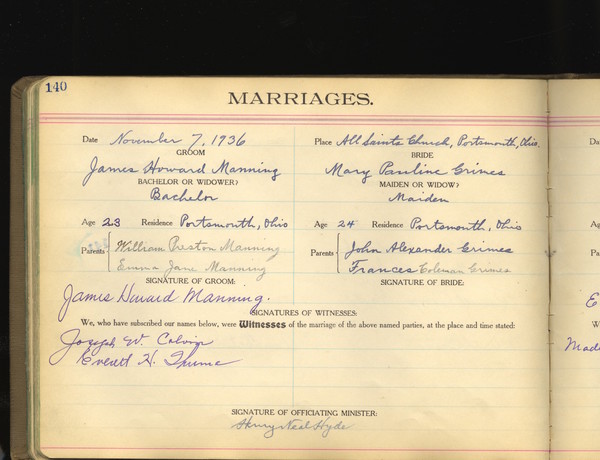 140
MARRIAGES.
Date November 7, 1936 Place All Saints Church, Portsmouth, Ohio.
GROOM BRIDE
James Howard Manning Mary Pauline Grimes
BACHELOR OR WIDOWER? MAIDEN OR WIDOW?
Bachelor Maiden
Age 23 Residence Portsmouth, Ohio Age 24 Residence Portsmouth, Ohio
Parents William Preston Manning Parents John Alexander Grimes
Emma Jane Manning Frances Coleman Grimes
SIGNATURE OF GROOM: SIGNATURE OF BRIDE:
James Howard Manning.
SIGNATURES OF WITNESSES:
We, who have subscribed our names below, were Witnesses of the marriage of the above named parties, at the place and time stated:
Joseph W. Colvin
Everett H.
SIGNATURE OF OFFICIATING MINISTER:
Henry Neal Hyde